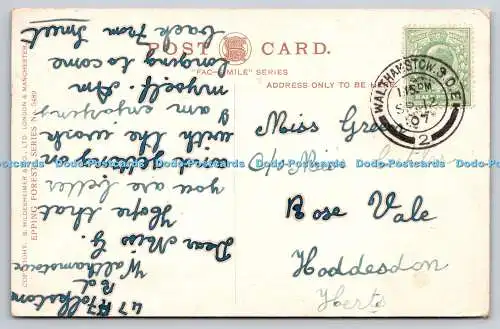 POST CARD.
"FAC-SIMILE" SERIES
ADDRESS ONLY TO BE
WALTHAMSTOW. S.O.E
SP 07
2
Miss Green
C/o Miss
Rose Vale
Hoddesdon
Herts
47
Folkestone
Rd
Walthamstow
Dear Miss G.
Hope that
you are better
and
with the work
I am enjoying
myself. Am
longing to come
back from
COPYRIGHT. R. HILDESHEIMER & CO., LTD. LONDON & MANCHESTER.
EPPING FOREST SERIES No. 5489
Dodo-Postcards Dodo-Postcards Dodo-Postcards Dodo-Postcards Dodo-Postcards Dodo-Postcards